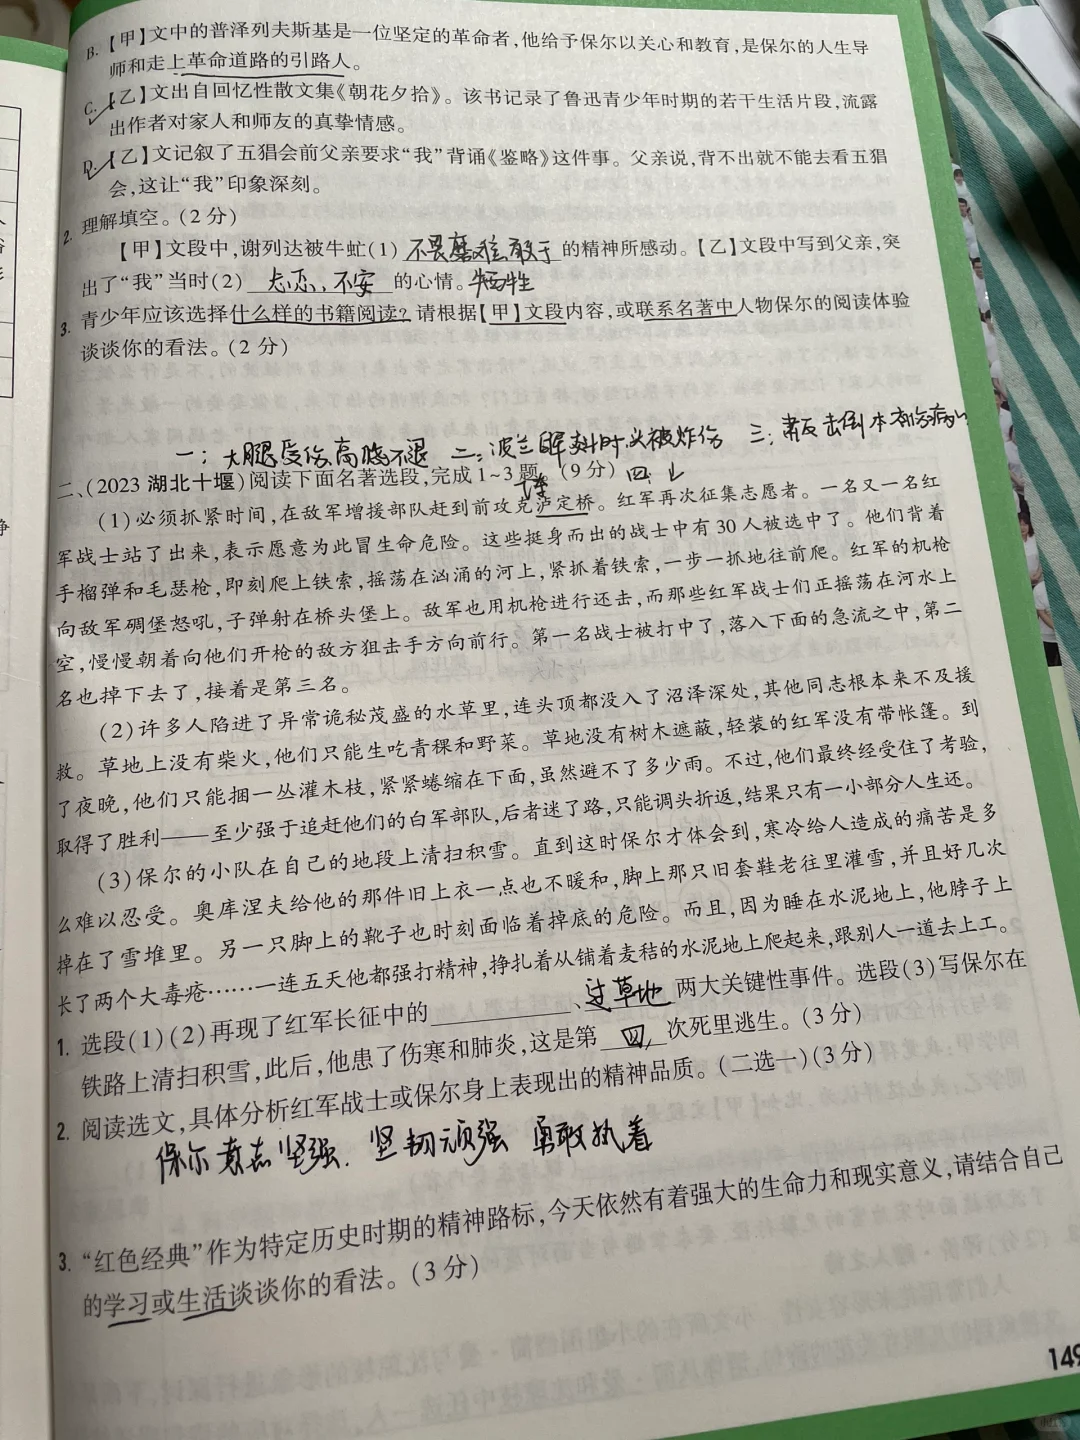 B.【甲】文中的普泽列夫斯基是一位坚定的革命者,他给予保尔以关心和教育,是保尔的人生导
师和走上革命道路的引路人。
C.【乙】文出自回忆性散文集《朝花夕拾》。该书记录了鲁迅青少年时期的若干生活片段,流露
出作者对家人和师友的真挚情感。
D.【乙】文记叙了五猖会前父亲要求“我”背诵《鉴略》这件事。父亲说,背不出就不能去看五猖
会,这让“我”印象深刻。
2. 理解填空。(2分)
【甲】文段中,谢列达被牛虻(1) 不畏磨难敢于 的精神所感动。【乙】文段中写到父亲,突
出了“我”当时(2) 忐忑、不安 的心情。牺牲
3. 青少年应该选择什么样的书籍阅读?请根据【甲】文段内容,或联系名著中人物保尔的阅读体验
谈谈你的看法。(2分)
一:大腿受伤高烧不退 二:波兰 时头被炸伤 三: 击倒
二、(2023湖北十堰)阅读下面名著选段,完成1~3题。(9分) 四 ↓
(1)必须抓紧时间,在敌军增援部队赶到前攻克泸定桥。红军再次征集志愿者。一名又一名红
军战士站了出来,表示愿意为此冒生命危险。这些挺身而出的战士中有30人被选中了。他们背着
手榴弹和毛瑟枪,即刻爬上铁索,摇荡在汹涌的河上,紧抓着铁索,一步一抓地往前爬。红军的机枪
向敌军碉堡怒吼,子弹射在桥头堡上。敌军也用机枪进行还击,而那些红军战士们正摇荡在河水上
空,慢慢朝着向他们开枪的敌方狙击手方向前行。第一名战士被打中了,落入下面的急流之中,第二
名也掉下去了,接着是第三名。
(2)许多人陷进了异常诡秘茂盛的水草里,连头顶都没入了沼泽深处,其他同志根本来不及援
救。草地上没有柴火,他们只能生吃青稞和野菜。草地没有树木遮蔽,轻装的红军没有带帐篷。到
了夜晚,他们只能捆一丛灌木枝,紧紧蜷缩在下面,虽然避不了多少雨。不过,他们最终经受住了考验,
取得了胜利——至少强于追赶他们的白军部队,后者迷了路,只能调头折返,结果只有一小部分人生还。
(3)保尔的小队在自己的地段上清扫积雪。直到这时保尔才体会到,寒冷给人造成的痛苦是多
么难以忍受。奥库涅夫给他的那件旧上衣一点也不暖和,脚上那只旧套鞋老往里灌雪,并且好几次
掉在了雪堆里。另一只脚上的靴子也时刻面临着掉底的危险。而且,因为睡在水泥地上,他脖子上
长了两个大毒疮……一连五天他都强打精神,挣扎着从铺着麦秸的水泥地上爬起来,跟别人一道去上工。
1. 选段(1)(2)再现了红军长征中的 、过草地 两大关键性事件。选段(3)写保尔在
铁路上清扫积雪,此后,他患了伤寒和肺炎,这是第 四 次死里逃生。(3分)
2. 阅读选文,具体分析红军战士或保尔身上表现出的精神品质。(二选一)(3分)
保尔意志坚强. 坚韧顽强 勇敢执着
3. “红色经典”作为特定历史时期的精神路标,今天依然有着强大的生命力和现实意义,请结合自己
的学习或生活谈谈你的看法。(3分)
149